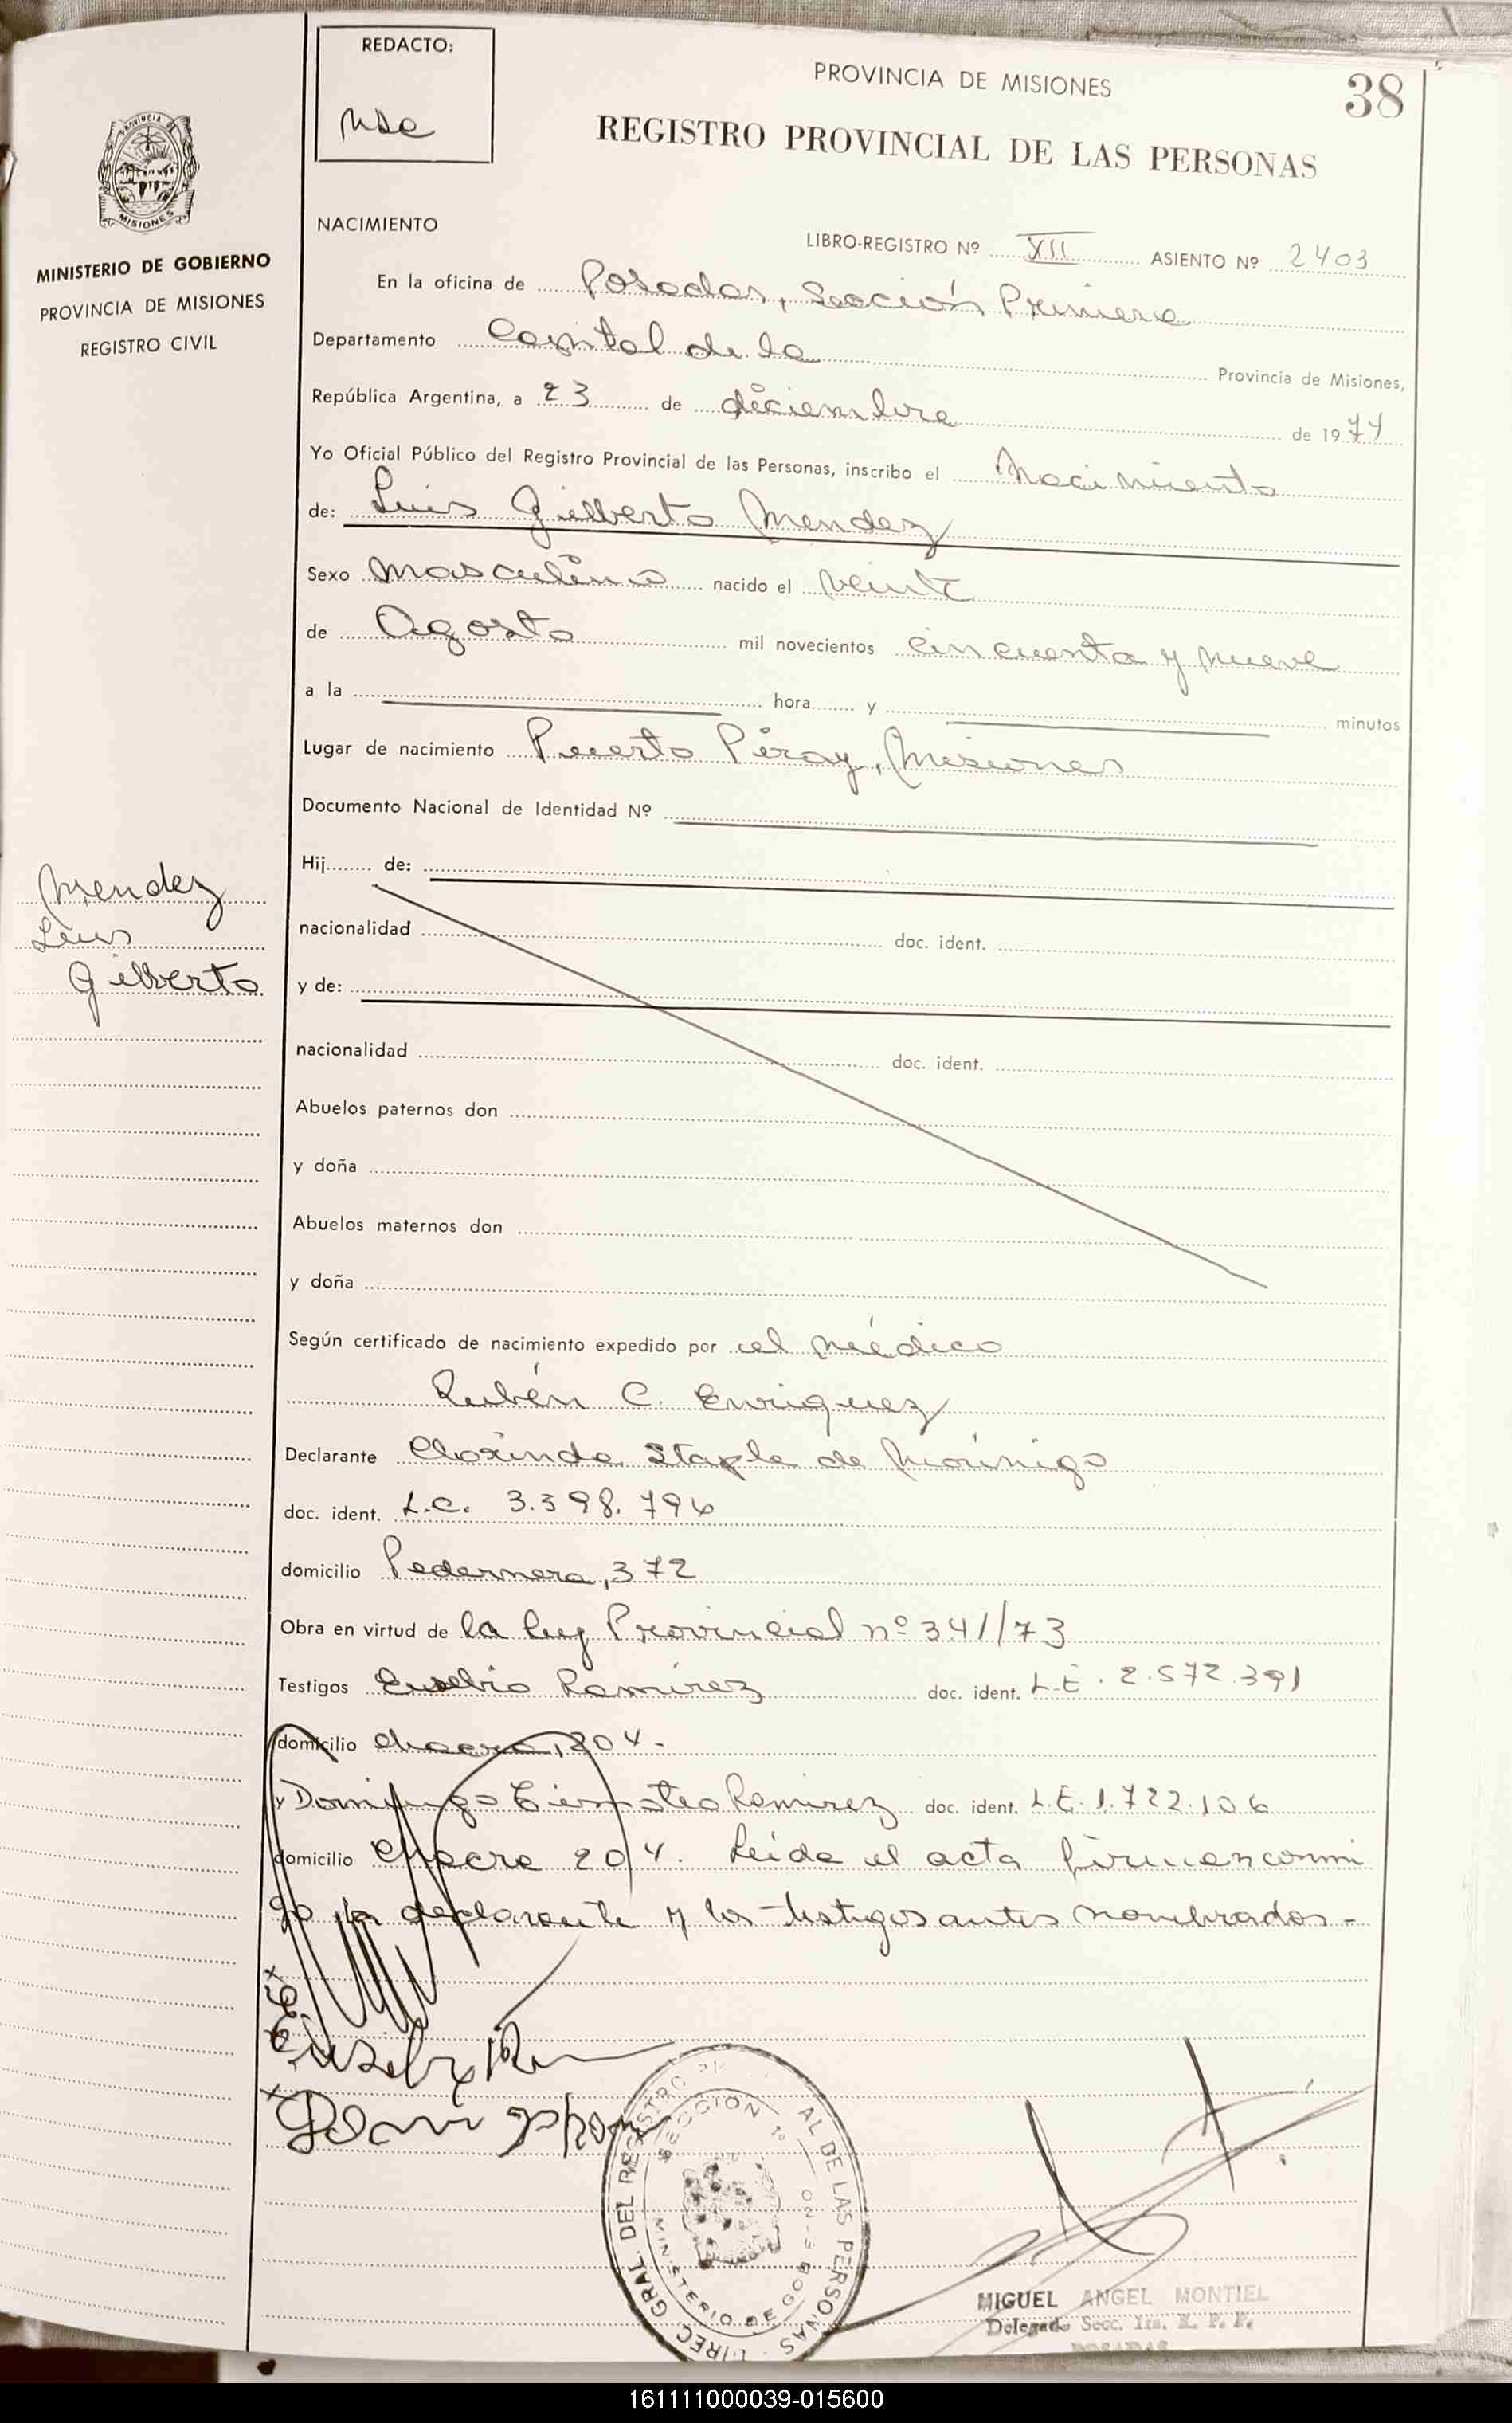 REDACTO:
PROVINCIA DE MISIONES
38
REGISTRO PROVINCIAL DE LAS PERSONAS
PROVINCIA DE
MISIONES
MINISTERIO DE GOBIERNO
PROVINCIA DE MISIONES
REGISTRO CIVIL
NACIMIENTO
LIBRO-REGISTRO Nº XII ASIENTO Nº 2403
En la oficina de Posadas, Sección Primera
Departamento Capital de la Provincia de Misiones,
República Argentina, a 23 de diciembre de 1974
Yo Oficial Público del Registro Provincial de las Personas, inscribo el Nacimiento
de: Luis Gilberto Mendez
Sexo masculino nacido el veinte
de Agosto mil novecientos cincuenta y nueve
a la hora y minutos
Lugar de nacimiento Puerto Piray, Misiones
Documento Nacional de Identidad Nº
Hij de:
Mendez
Luis
Gilberto
nacionalidad doc. ident.
y de:
nacionalidad doc. ident.
Abuelos paternos don
y doña
Abuelos maternos don
y doña
Según certificado de nacimiento expedido por el médico
Rubén C. Enriquez
Declarante Clorinda Staple de Morinigo
doc. ident. L.C. 3.398.794
domicilio Pedernera, 372
Obra en virtud de la ley Provincial nº 341/73
Testigos Eusebio Ramírez doc. ident. L.E. 2.572.391
domicilio chacra, 204.
y Domingo Ramirez doc. ident. L.E. 1.722.106
domicilio Chacra 204. Leida el acta firman conmi
go la declarante y los testigos antes nombrados.-
DIREC. GRAL. DEL REGISTRO AL DE LAS PERSONAS
SECCION 1º
MINISTERIO DE GOBIERNO
MIGUEL ANGEL MONTIEL
Delegado Secc. 1ra. R. P. P.
POSADAS
161111000039-015600